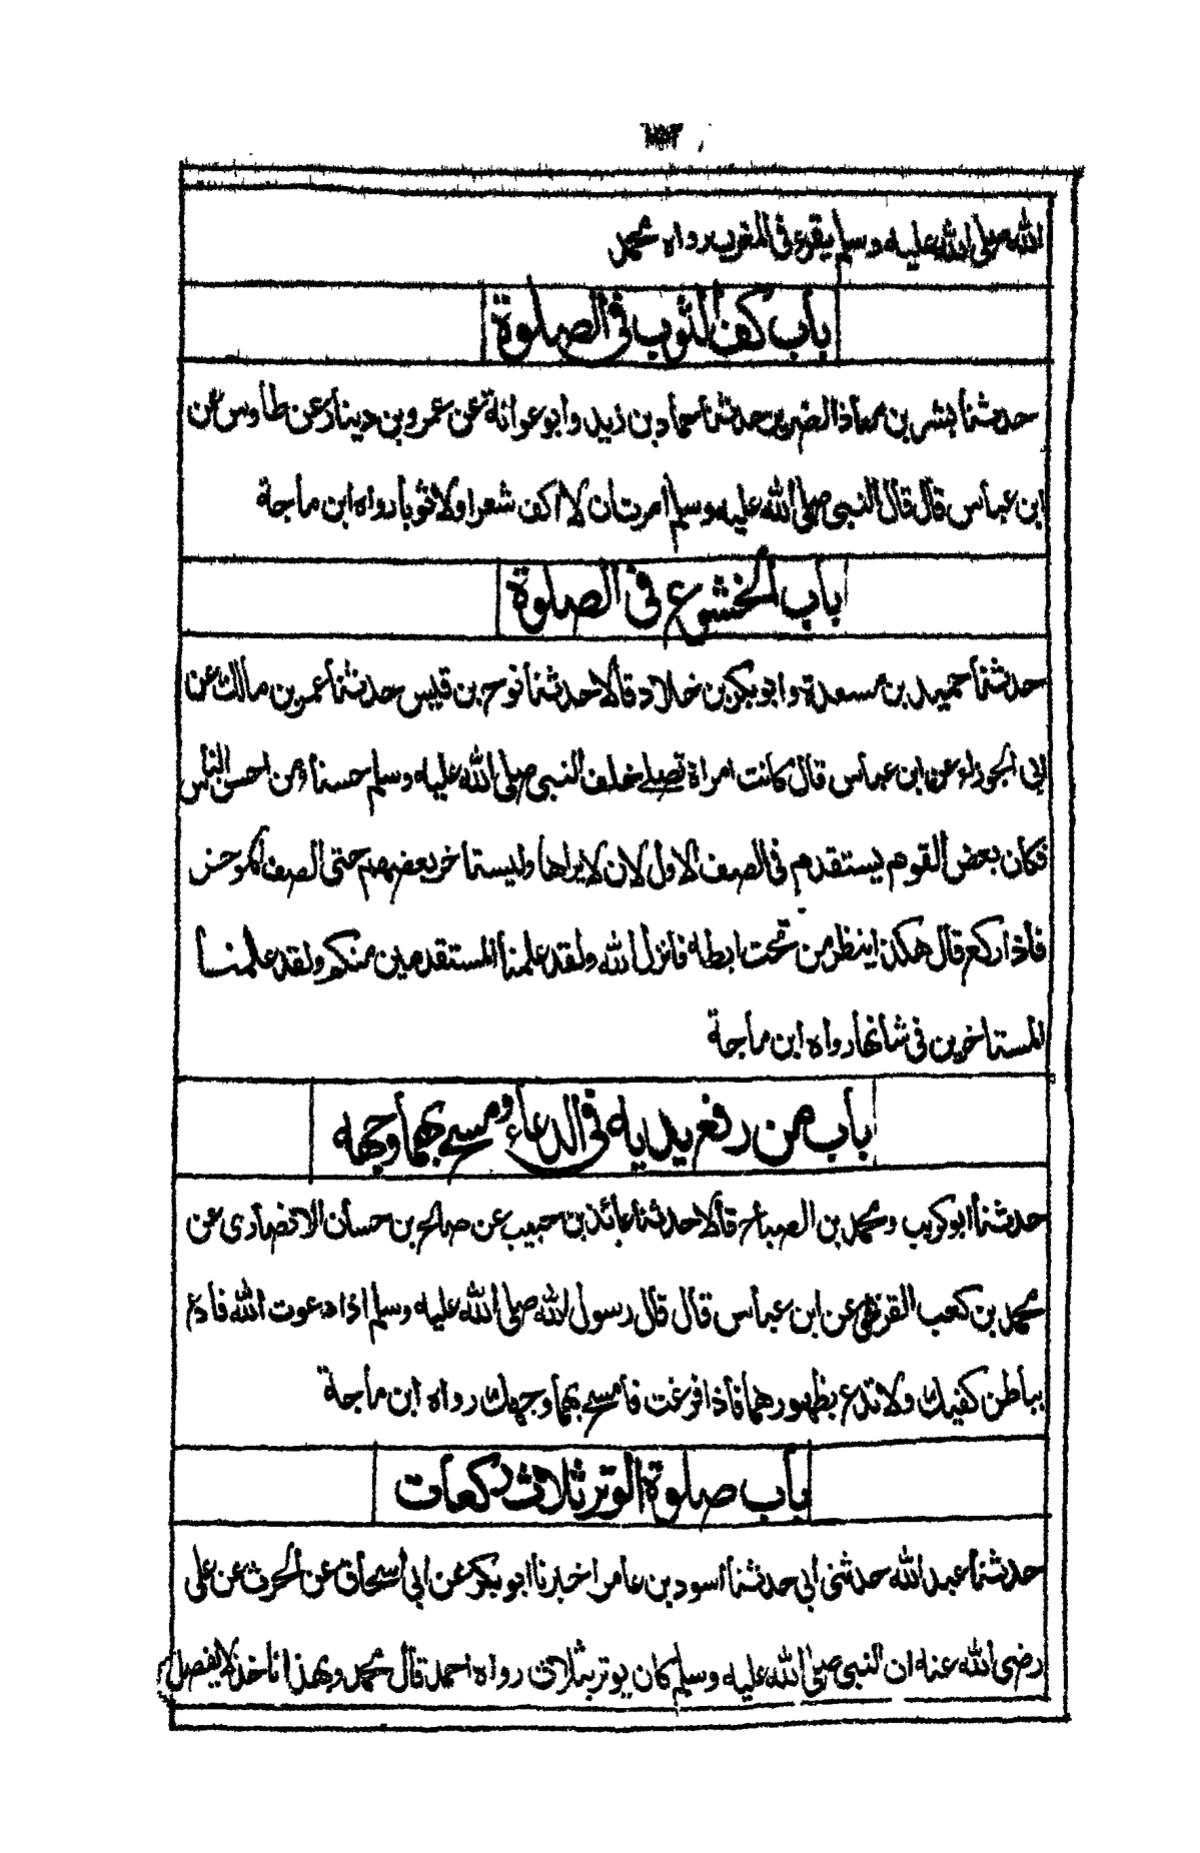 الله صلى الله عليه وسلم يقرء فى المغرب رواه محمد
باب كف الثوب فى الصلوة
حدثنا بشر بن معاذ الضرير حدثنا حماد بن زيد وابو عوانة عن عمرو بن دينار عن طاوس عن
ابن عباس قال قال النبى صلى الله عليه وسلم امرت ان لا اكف شعرا ولا ثوبا رواه ابن ماجة
باب الخشوع فى الصلوة
حدثنا حميد بن مسعدة وابو بكر بن خلاد قالا حدثنا نوح بن قيس حدثنا عمر بن مالك عن
ابى الجوزاء عن ابن عباس قال كانت امراة تصلے خلف النبى صلى الله عليه وسلم حسناء من احسن الناس
فكان بعض القوم يستقدم فى الصف الاول لان لا يراها وليستاخر بعضهم حتى الصف المؤخر
فاذا ركع قال هكذا ينظر من تحت ابطه فانزل الله ولقد علمنا المستقدمين منكم ولقد علمنا
المستاخرين فى شانها رواه ابن ماجة
باب من رفع يديه فى الدعاء ومسح بهما وجهه
حدثنا ابو كريب ومحمد بن الصباح قالا حدثنا عائذ بن حبيب عن صالح بن حسان الانصارى عن
محمد بن كعب القرظى عن ابن عباس قال قال رسول الله صلى الله عليه وسلم اذا دعوت الله فادع
بباطن كفيك ولا تدع بظهورهما فاذا فرغت فامسح بهما وجهك رواه ابن ماجة
باب صلوة الوتر ثلاث ركعات
حدثنا عبد الله حدثنى ابى حدثنا اسود بن عامر اخبرنا ابو بكر عن ابى اسحاق عن الحرث عن على
رضى الله عنه ان النبى صلى الله عليه وسلم كان يوتر بثلاث رواه احمد قال محمد وبهذا ناخذ لا يفصل